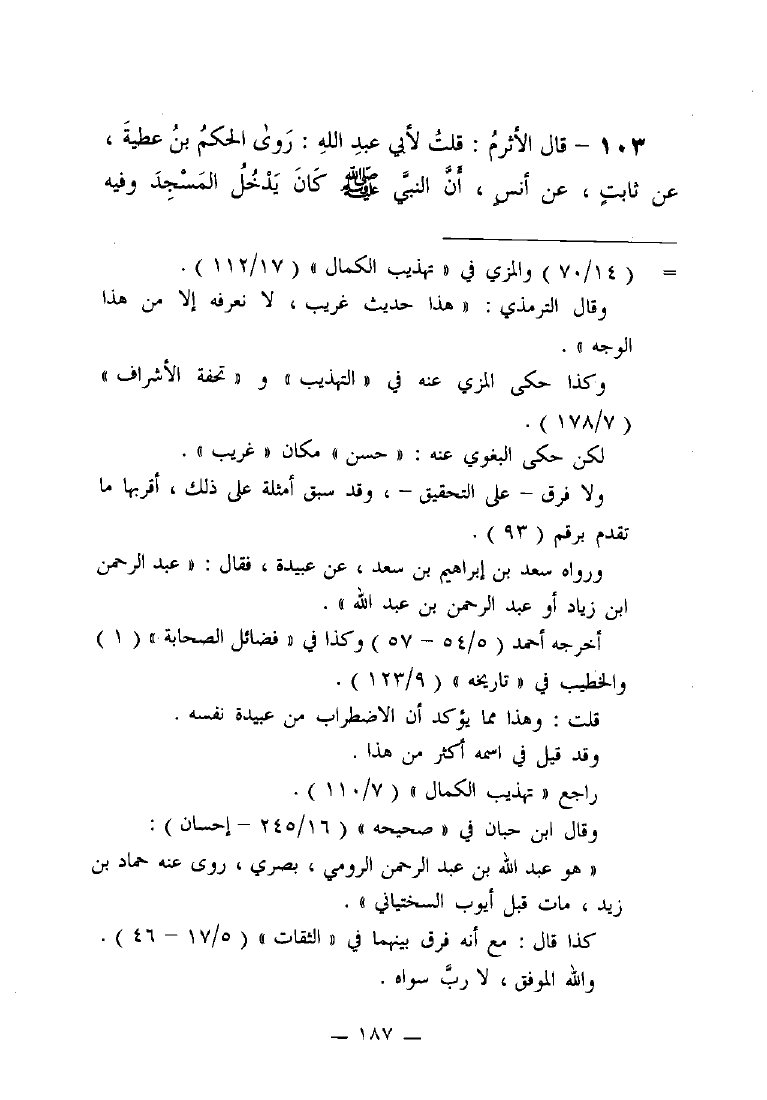 ١٠٣ – قال الأثرمُ : قلتُ لأبي عبدِ اللهِ : رَوىٰ الحكمُ بنُ عطيةَ ،
عن ثابتٍ ، عن أنسٍ ، أَنَّ النبيَّ ﷺ كَانَ يَدْخُلُ المَسْجِدَ وفيه
= ( ٧٠/١٤ ) والمزي في « تهذيب الكمال » ( ١١٢/١٧ ) .
وقال الترمذي : « هذا حديث غريب ، لا نعرفه إلا من هذا
الوجه » .
وكذا حكى المزي عنه في « التهذيب » و « تحفة الأشراف »
( ١٧٨/٧ ) .
لكن حكى البغوي عنه : « حسن » مكان « غريب » .
ولا فرق – على التحقيق – ، وقد سبق أمثلة على ذلك ، أقربها ما
تقدم برقم ( ٩٣ ) .
ورواه سعد بن إبراهيم بن سعد ، عن عبيدة ، فقال : « عبد الرحمن
ابن زياد أو عبد الرحمن بن عبد الله » .
أخرجه أحمد ( ٥٤/٥ – ٥٧ ) وكذا في « فضائل الصحابة » ( ١ )
والخطيب في « تاريخه » ( ١٢٣/٩ ) .
قلت : وهذا مما يؤكد أن الاضطراب من عبيدة نفسه .
وقد قيل في اسمه أكثر من هذا .
راجع « تهذيب الكمال » ( ١١٠/٧ ) .
وقال ابن حبان في « صحيحه » ( ٢٤٥/١٦ – إحسان ) :
« هو عبد الله بن عبد الرحمن الرومي ، بصري ، روى عنه حماد بن
زيد ، مات قبل أيوب السختياني » .
كذا قال : مع أنه فرق بينهما في « الثقات » ( ١٧/٥ – ٤٦ ) .
والله الموفق ، لا ربَّ سواه .
– ١٨٧ –